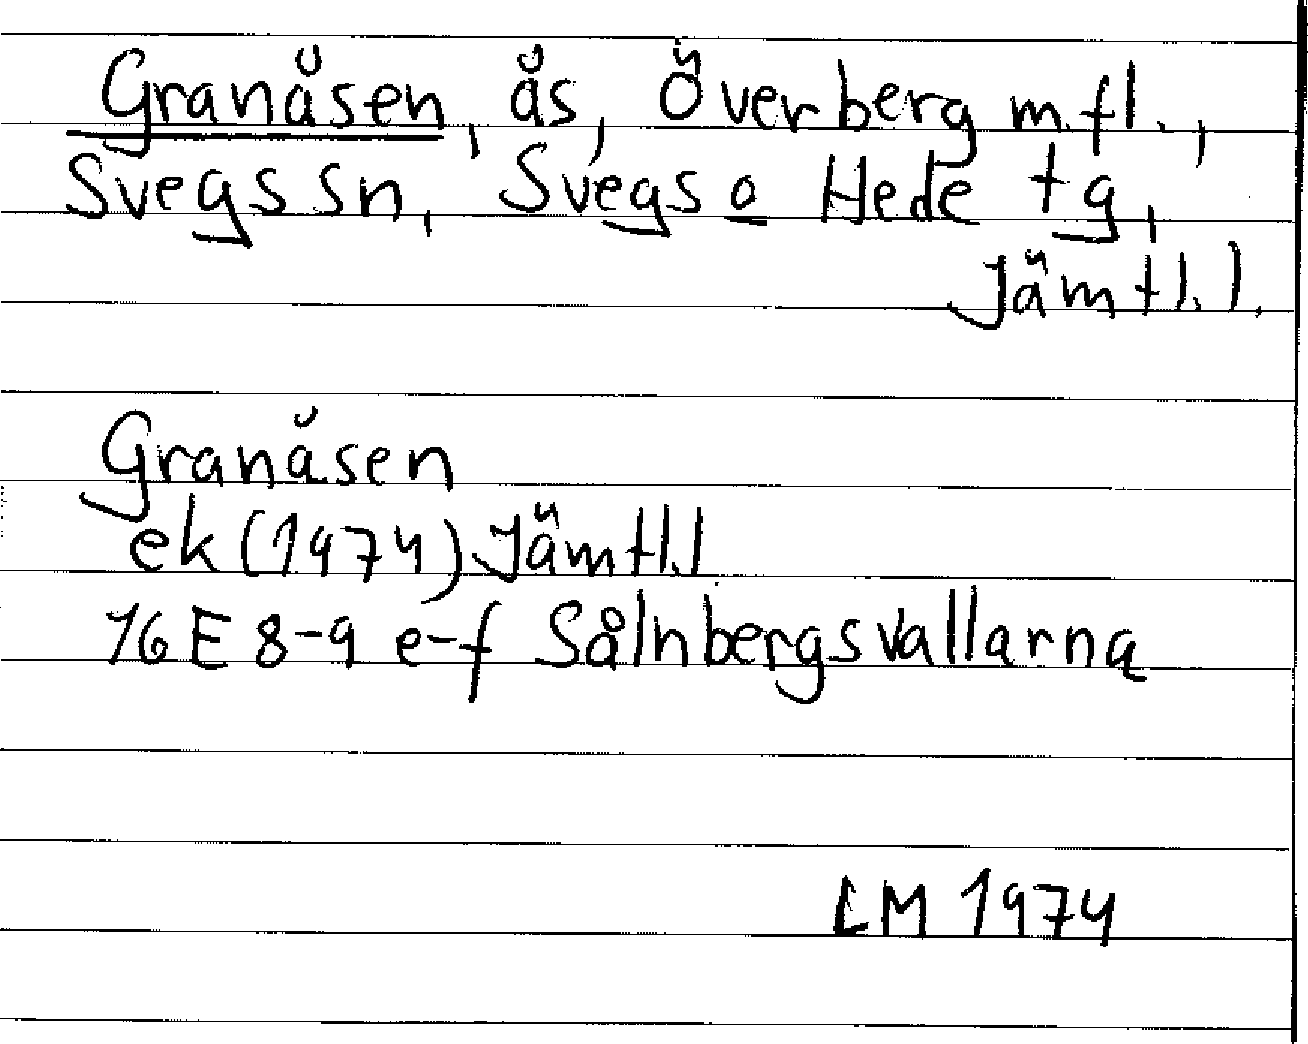 Granåsen, ås, Överberg m.fl.,
Svegs sn, Svegs o Hede tg,
Jämtl. l.
Granåsen
ek (1974) Jämtl.l
16E 8-9 e-f Sålnbergsvallarna
LM 1974